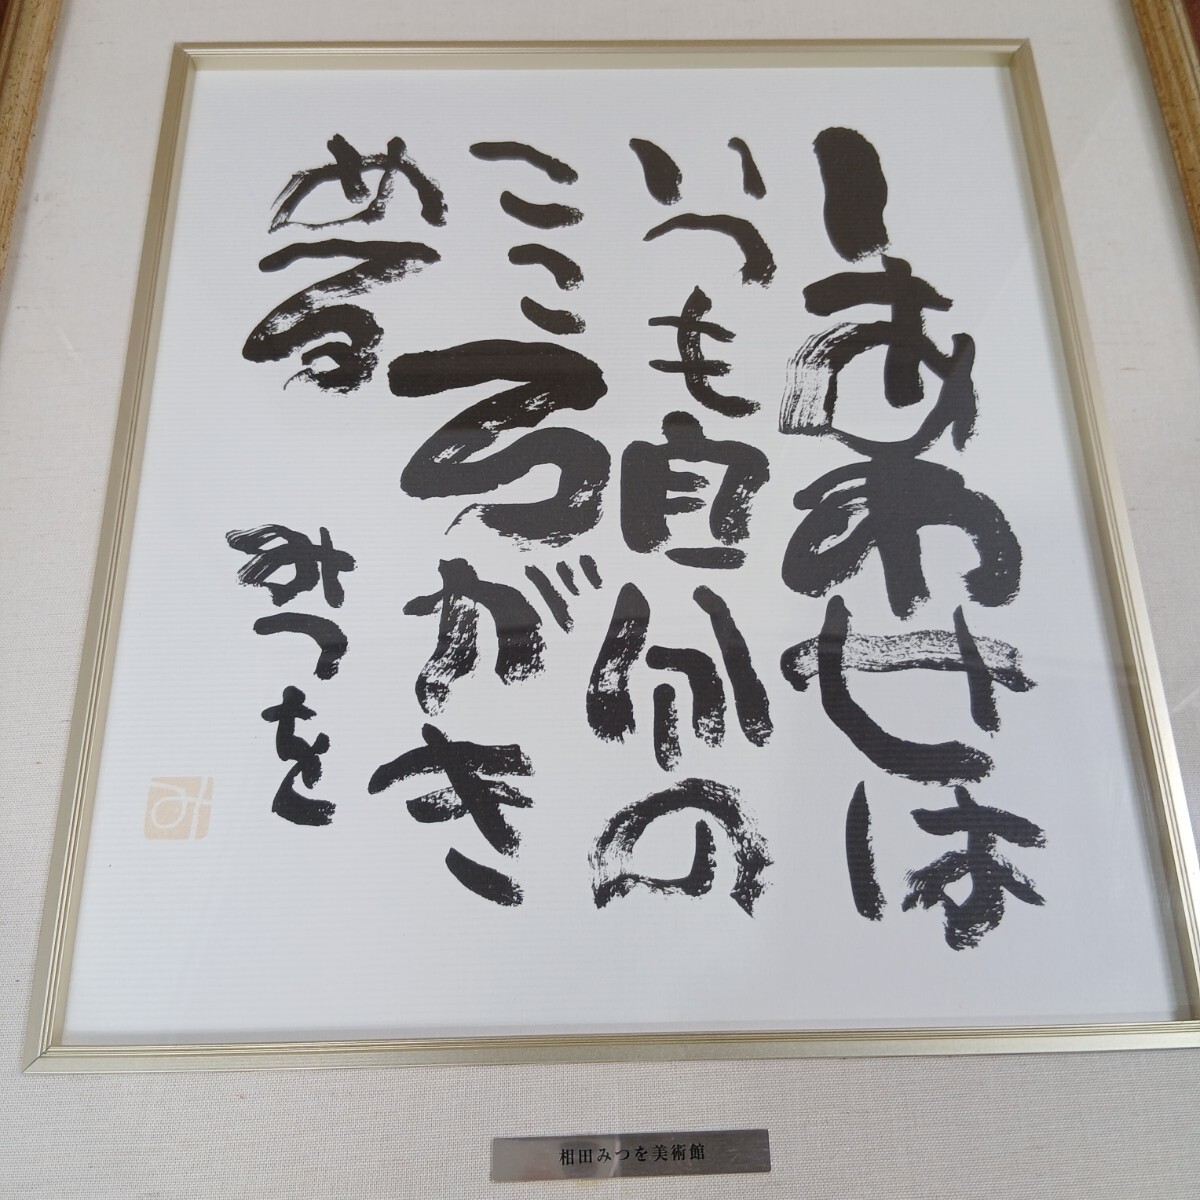 しあわせは
いつも自分の
こころがき
める
みつを
み
相田みつを美術館